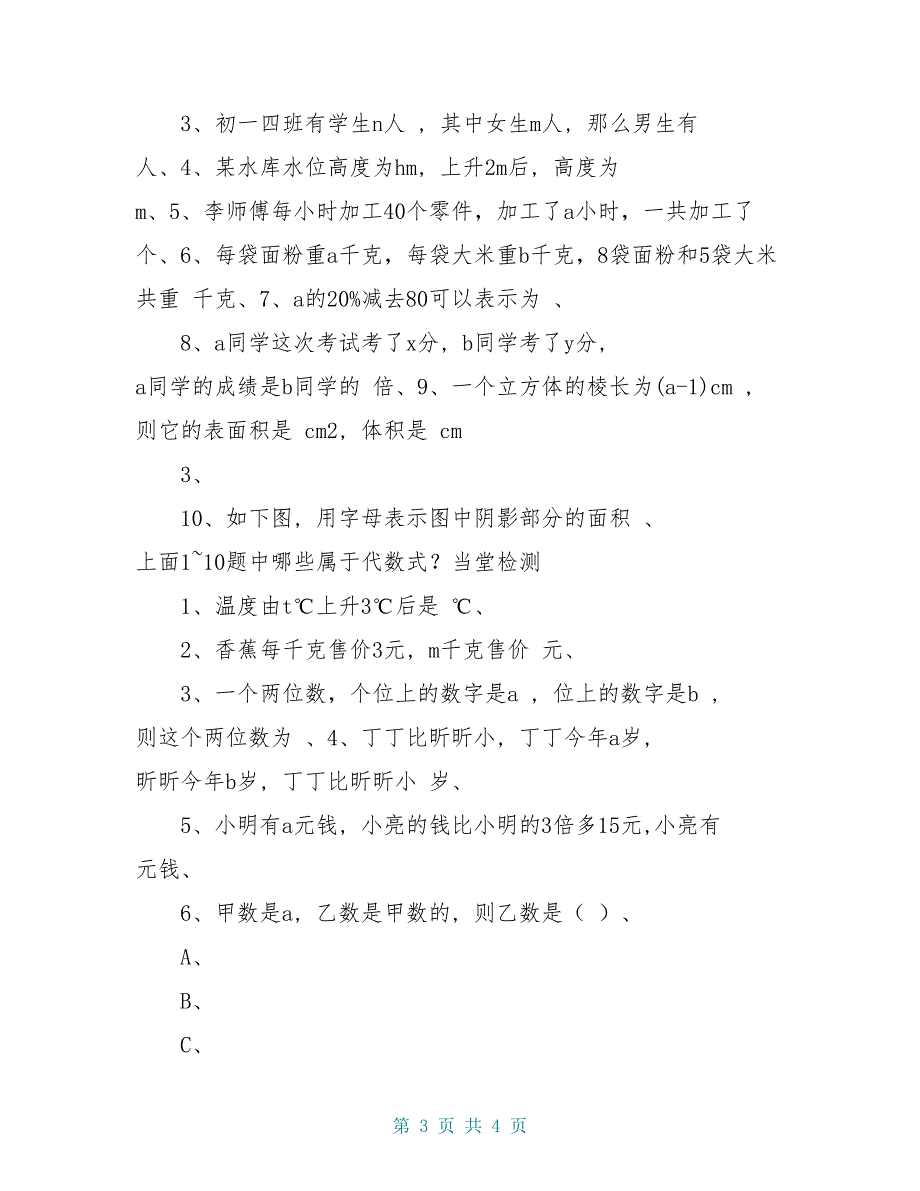 3、初一四班有学生n人 ，其中女生m人，那么男生有
人、4、某水库水位高度为hm，上升2m后，高度为
m、5、李师傅每小时加工40个零件，加工了a小时，一共加工了
个、6、每袋面粉重a千克，每袋大米重b千克，8袋面粉和5袋大米
共重 千克、7、a的20%减去80可以表示为 、
8、a同学这次考试考了x分，b同学考了y分，
a同学的成绩是b同学的 倍、9、一个立方体的棱长为(a-1)cm ，
则它的表面积是 cm2，体积是 cm
3、
10、如下图，用字母表示图中阴影部分的面积 、
上面1~10题中哪些属于代数式？当堂检测
1、温度由t℃上升3℃后是 ℃、
2、香蕉每千克售价3元，m千克售价 元、
3、一个两位数，个位上的数字是a ，位上的数字是b ，
则这个两位数为 、4、丁丁比昕昕小，丁丁今年a岁，
昕昕今年b岁，丁丁比昕昕小 岁、
5、小明有a元钱，小亮的钱比小明的3倍多15元,小亮有
元钱、
6、甲数是a，乙数是甲数的，则乙数是（ ）、
A、
B、
C、
第 3 页 共 4 页